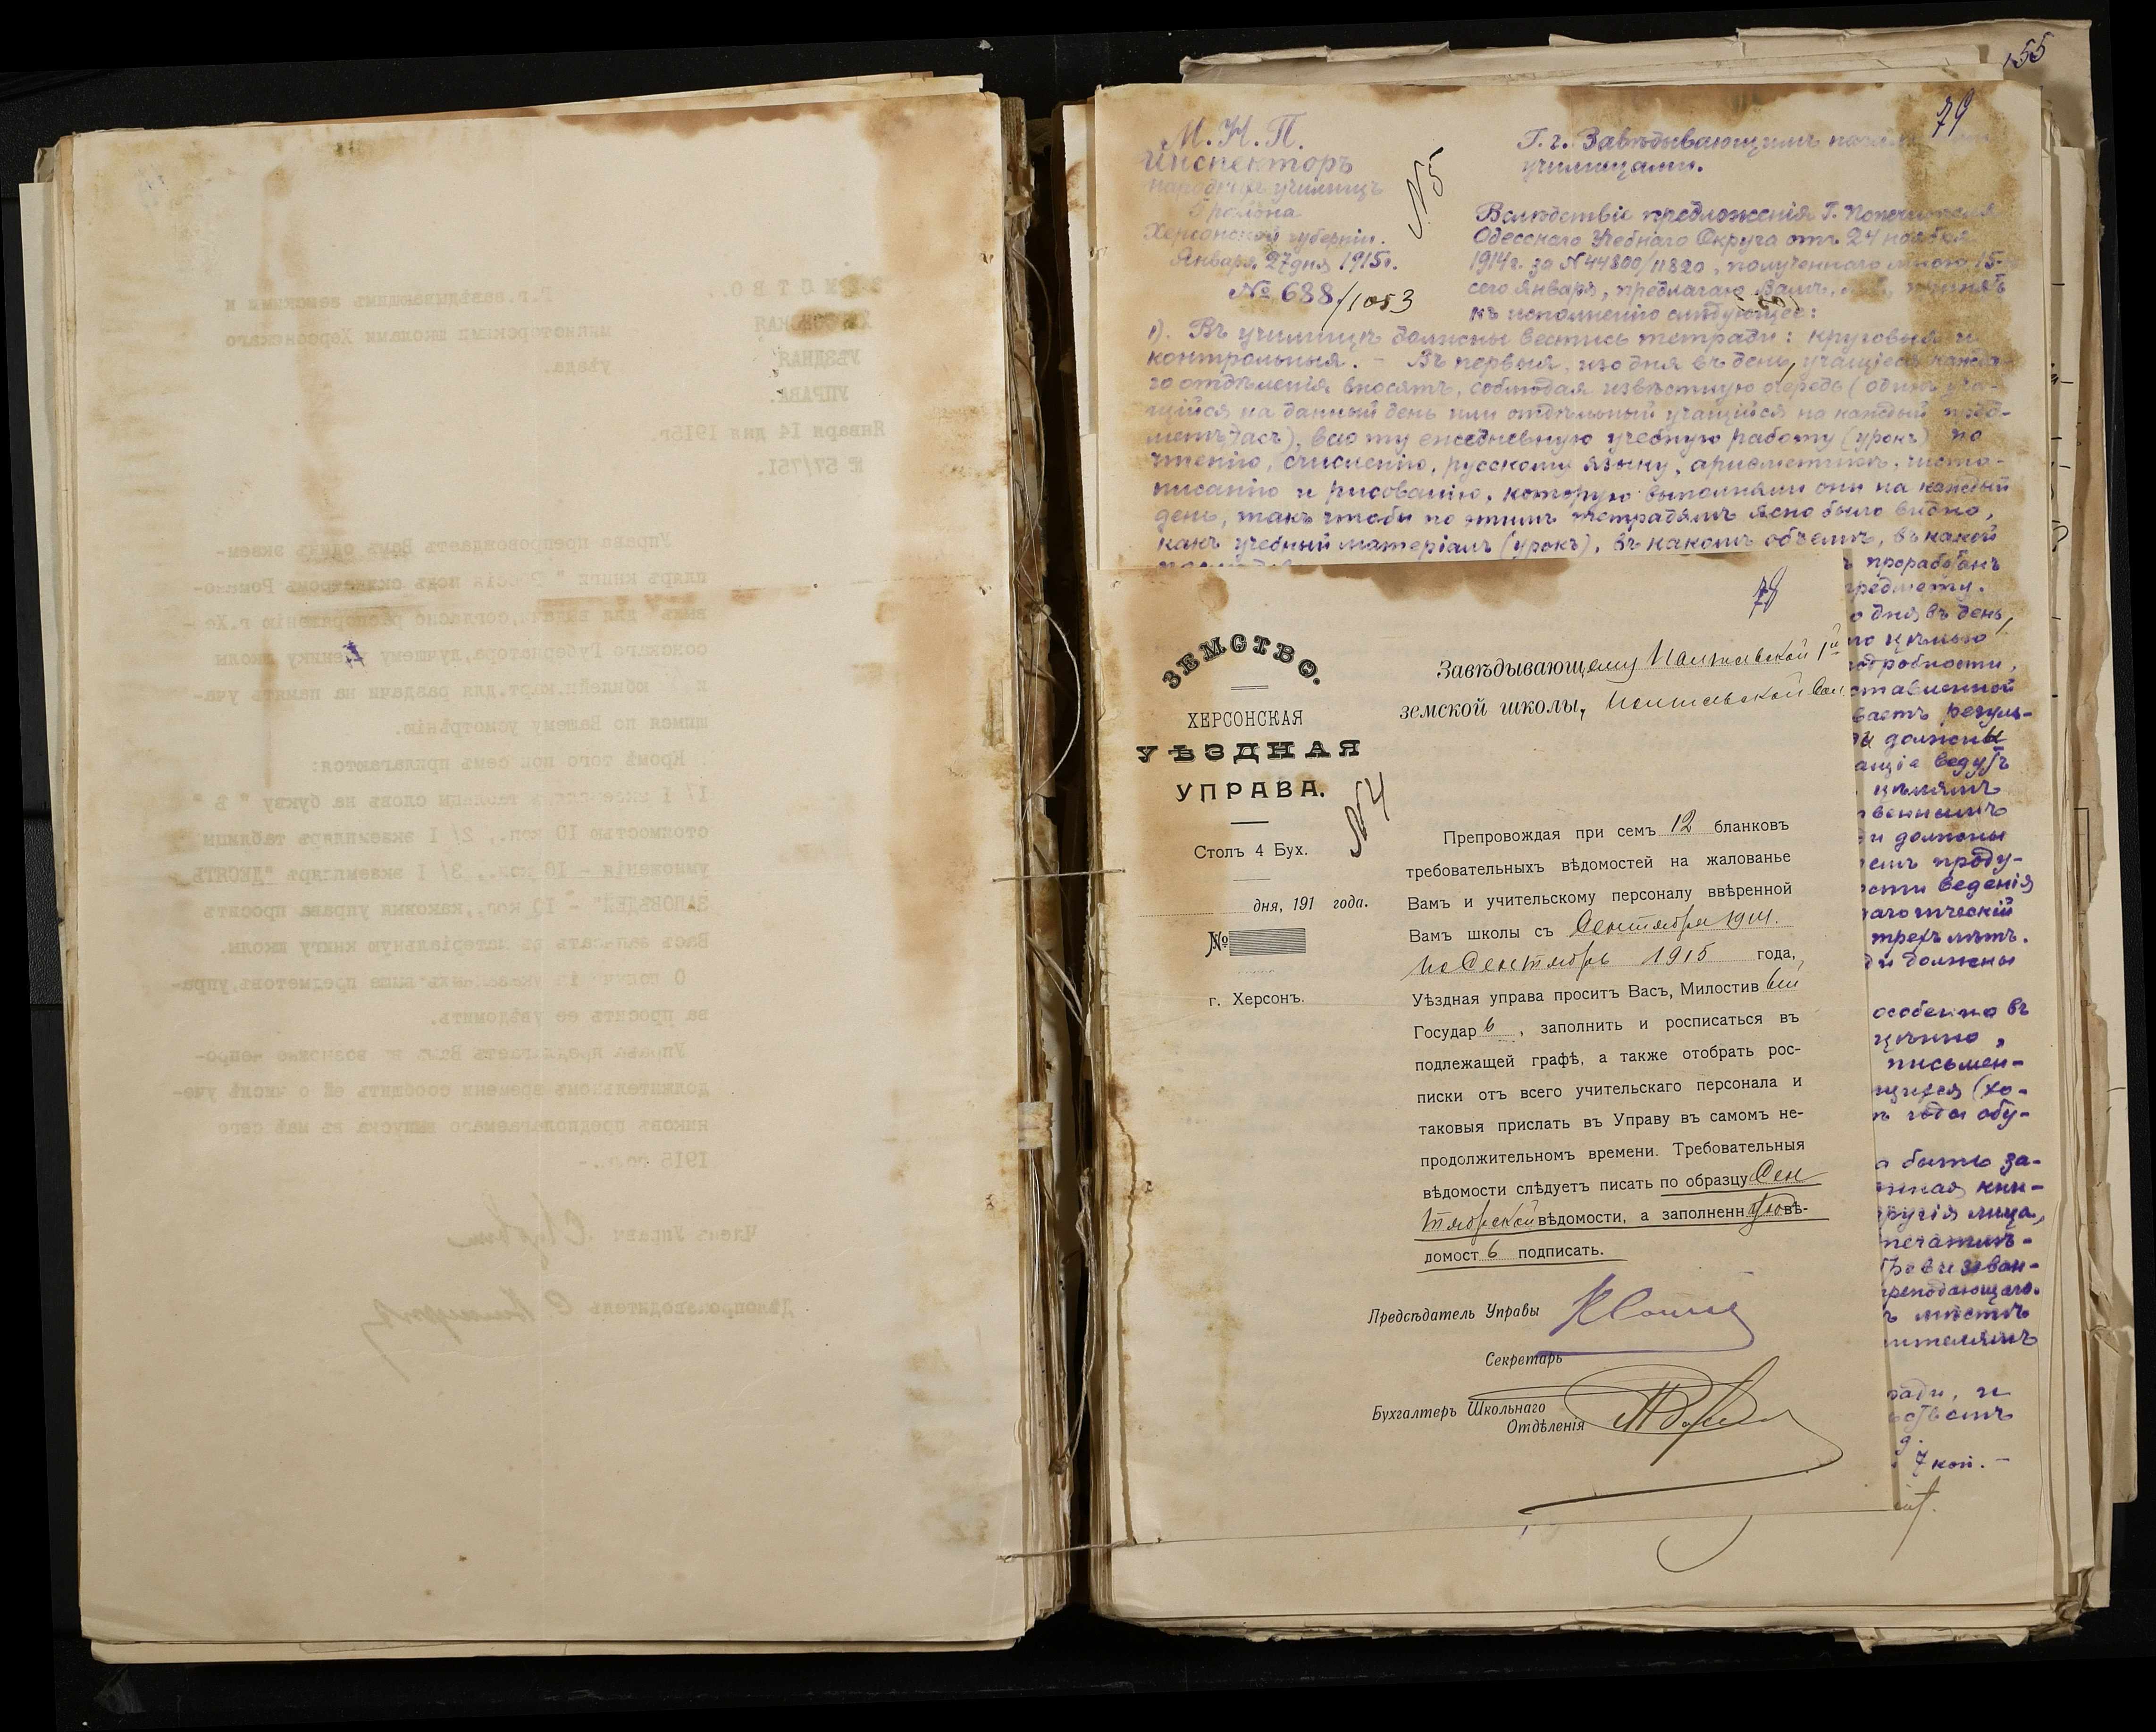 155
79
М. Н. П.
Инспекторъ
народныхъ училищъ
5 района
Херсонской губерніи.
Января 27 дня 1915 г.
№ 688/1053
N5
Г.г. Завѣдывающимъ
училищами.
Вслѣдствіе предложенія Г. Попечителя
Одесскаго Учебнаго Округа отъ 24 ноября
1914 г. за N 44800/11820, полученнаго мною 15
сего Января, предлагаю Вамъ,
къ исполненію слѣдующее:
1). Въ училищѣ должны вестись тетради: круговыя и
контрольныя. – Въ первыя, изо дня въ день, учащіеся каждо-
го отдѣленія вносятъ, соблюдая извѣстную очередь (одинъ уча-
щійся на данный день или отдѣльный учащійся на каждый пред-
метъ, часъ), всю ту ежедневную учебную работу (урокъ) по
чтенію, счисленію, русскому языку, ариѳметикѣ, чисто-
писанію и рисованію, которую выполняли они на каждый
день, такъ чтобы по этимъ тетрадямъ ясно было видно,
какъ учебный матеріалъ (урокъ), въ какомъ объемѣ, въ какой
ъ проработанъ
предмету.
о дня въ день,
по цѣлью
подробности,
ставленной
ваетъ резуль-
должны
ащіе ведутъ
цѣлямъ
веннымъ
и должны
проду-
ости веденія
агогическій
трехъ лѣтъ.
ди должны
особенно въ
цѣнно,
письмен-
щихся (хо-
ъ года обу-
а быть за-
жная кни-
другія лица,
печатлѣ-
преподающаго.
ъ мѣстѣ
ителямъ
ради, и
7 коп. –
78
ЗЕМСТВО.
ХЕРСОНСКАЯ
УѢЗДНАЯ
УПРАВА.
N4
Столъ 4 Бух.
дня, 191 года.
№
г. Херсонъ.
Завѣдывающему Полтавской 1й
земской школы, Полтавской Вол.
Препровождая при семъ 12 бланковъ
требовательныхъ вѣдомостей на жалованье
Вамъ и учительскому персоналу ввѣренной
Вамъ школы съ Сентября 1914.
по Сентябрь 1915 года,
Уѣздная управа проситъ Васъ, Милостив ый
Государ ь , заполнить и росписаться въ
подлежащей графѣ, а также отобрать рос-
писки отъ всего учительскаго персонала и
таковыя прислать въ Управу въ самомъ не-
продолжительномъ времени. Требовательныя
вѣдомости слѣдуетъ писать по образцу Сен
тябрской вѣдомости, а заполненн ую вѣ-
домост ь подписать.
Предсѣдатель Управы
Секретарь
Бухгалтеръ Школьнаго
Отдѣленія
З Е М С Т В О.
ХЕРСОНСКАЯ
УѢЗДНАЯ
УПРАВА.
Января 14 дня 1915г.
№ 57/751.
Г.г.завѣдывающимъ земскими и
министерскими школами Херсонскаго
уѣзда.
Управа препровождаетъ Вамъ одинъ экзем-
пляръ книги " Россія подъ скипетромъ Романо-
выхъ" для выдачи,согласно распоряженію г.Хер-
сонскаго Губернатора,лучшему ученику школы
и юбилейн.карт.для раздачи на память уча-
щимся по Вашему усмотрѣнію.
Кромѣ того при семъ прилагаются:
1/ 1 экземпляръ таблицы словъ на букву " Ѣ "
стоимостью 10 коп., 2/ 1 экземпляръ таблицы
умноженія - 10 коп., 3/ 1 экземпляръ "ДЕСЯТЬ
ЗАПОВѢДЕЙ" - 10 коп.,каковыя управа проситъ
Васъ записать въ матеріальную книгу школы.
О полученіи указанныхъ выше предметовъ,упра-
ва проситъ ее увѣдомить.
Управа предлагаетъ Вамъ въ возможно непро-
должительномъ времени сообщить ей о числѣ уче-
никовъ предполагаемаго выпуска въ маѣ сего
1915 года.-
Членъ Управы
Дѣлопроизводитель